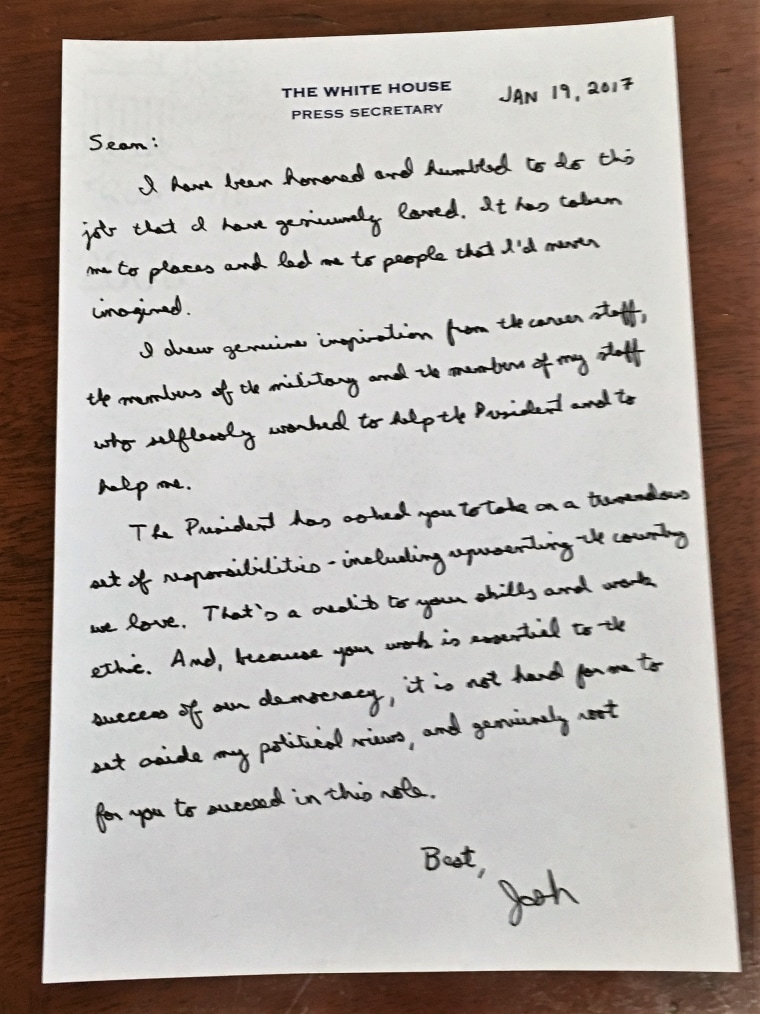 THE WHITE HOUSE
PRESS SECRETARY
JAN 19, 2017
Sean:
I have been honored and humbled to do this
job that I have geniunely loved. It has taken
me to places and led me to people that I'd never
imagined.
I drew genuine inspiration from the career staff,
the members of the military and the members of my staff
who selflessly worked to help the President and to
help me.
The President has asked you to take on a tremendous
set of responsibilities - including representing the country
we love. That's a credit to your skills and work
ethic. And, because your work is essential to the
success of our democracy, it is not hard for me to
set aside my political views, and genuinely root
for you to succeed in this role.
Best,
Josh